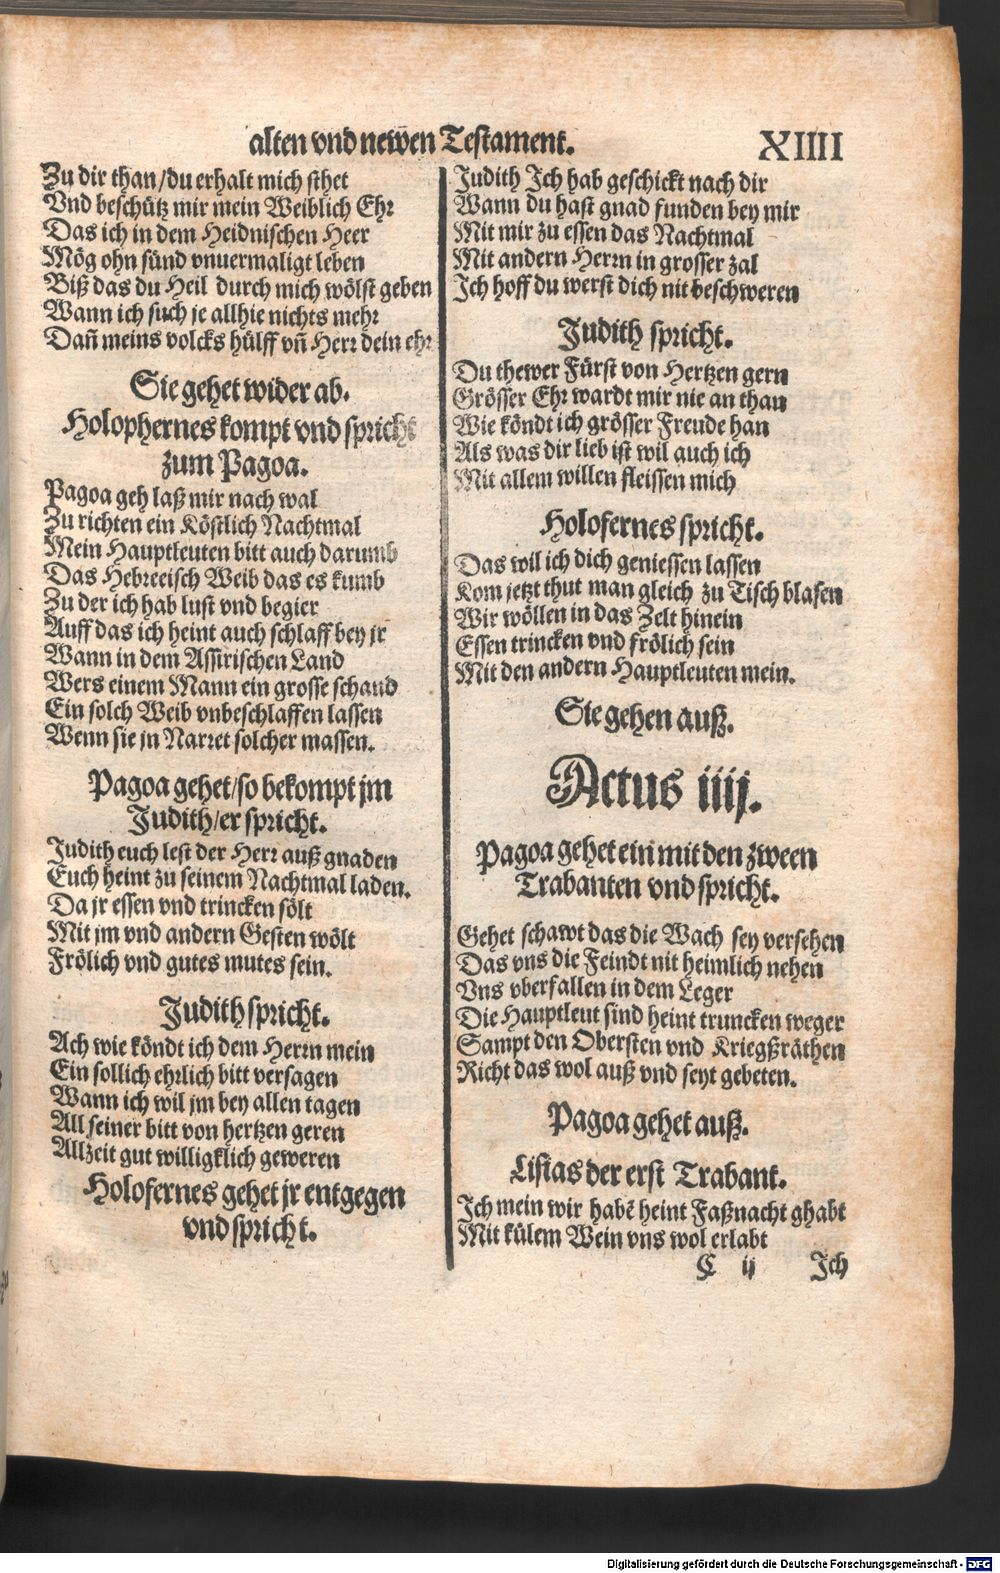 alten vnd newen Testament. XIIII
Zu dir than/du erhalt mich sthet
Vnd beschütz mir mein Weiblich Ehr
Das ich in dem Heidnischen Heer
Mög ohn sünd vnuermaligt leben
Biß das du Heil durch mich wölst geben
Wann ich such je allhie nichts mehr
Dañ meins volcks hülff vñ Herr dein ehr
Sie gehet wider ab.
Holophernes kompt vnd spricht
zum Pagoa.
Pagoa geh laß mir nach wal
Zu richten ein Köstlich Nachtmal
Mein Hauptleuten bitt auch darumb
Das Hebreeisch Weib das es kumb
Zu der ich hab lust vnd begier
Auff das ich heint auch schlaff bey jr
Wann in dem Assirischen Land
Wers einem Mann ein grosse schand
Ein solch Weib vnbeschlaffen lassen
Wenn sie jn Narret solcher massen.
Pagoa gehet/so bekompt jm
Judith/er spricht.
Judith euch lest der Herr auß gnaden
Euch heint zu seinem Nachtmal laden.
Da jr essen vnd trincken sölt
Mit jm vnd andern Gesten wölt
Frölich vnd gutes mutes sein.
Judith spricht.
Ach wie köndt ich dem Herrn mein
Ein sollich ehrlich bitt versagen
Wann ich wil jm bey allen tagen
All seiner bitt von hertzen geren
Allzeit gut williglich geweren
Holofernes gehet jr entgegen
vnd spricht.
Judith Ich hab geschickt nach dir
Wann du hast gnad funden bey mir
Mit mir zu essen das Nachtmal
Mit andern Herrn in grosser zal
Ich hoff du werst dich nit beschweren
Judith spricht.
Du thewer Fürst von Hertzen gern
Grösser Ehr wardt mir nie an than
Wie köndt ich grösser Freude han
Als was dir lieb ist wil auch ich
Mit allem willen fleissen mich
Holofernes spricht.
Das wil ich dich geniessen lassen
Kom jetzt thut man gleich zu Tisch blasen
Wir wöllen in das Zelt hinein
Essen trincken vnd frölich sein
Mit den andern Hauptleuten mein.
Sie gehen auß.
Actus iiij.
Pagoa gehet ein mit den zween
Trabanten vnd spricht.
Gehet schawt das die Wach sey versehen
Das vns die Feindt nit heimlich nehen
Vns vberfallen in dem Leger
Die Hauptleut sind heint truncken weger
Sampt den Obersten vnd Kriegßräthen
Richt das wol auß vnd seyt gebeten.
Pagoa gehet auß.
Lisias der erst Trabant.
Ich mein wir habē heint Faßnacht ghabt
Mit külem Wein vns wol erlabt
C ij Ich
Digitalisierung gefördert durch die Deutsche Forschungsgemeinschaft - DFG